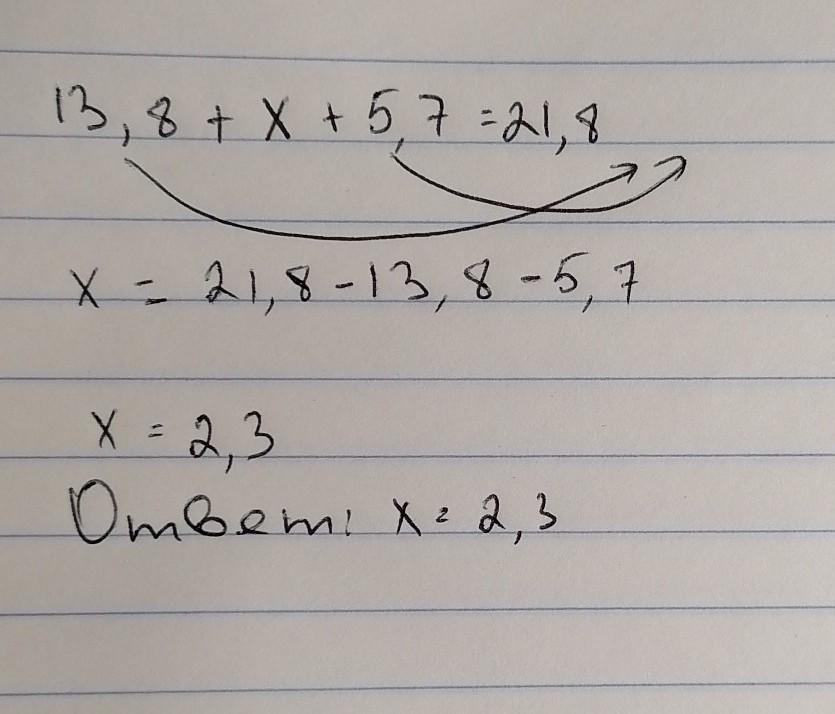 13,8 + x + 5,7 = 21,8
x = 21,8 - 13,8 - 5,7
x = 2,3
Ответ: x = 2,3